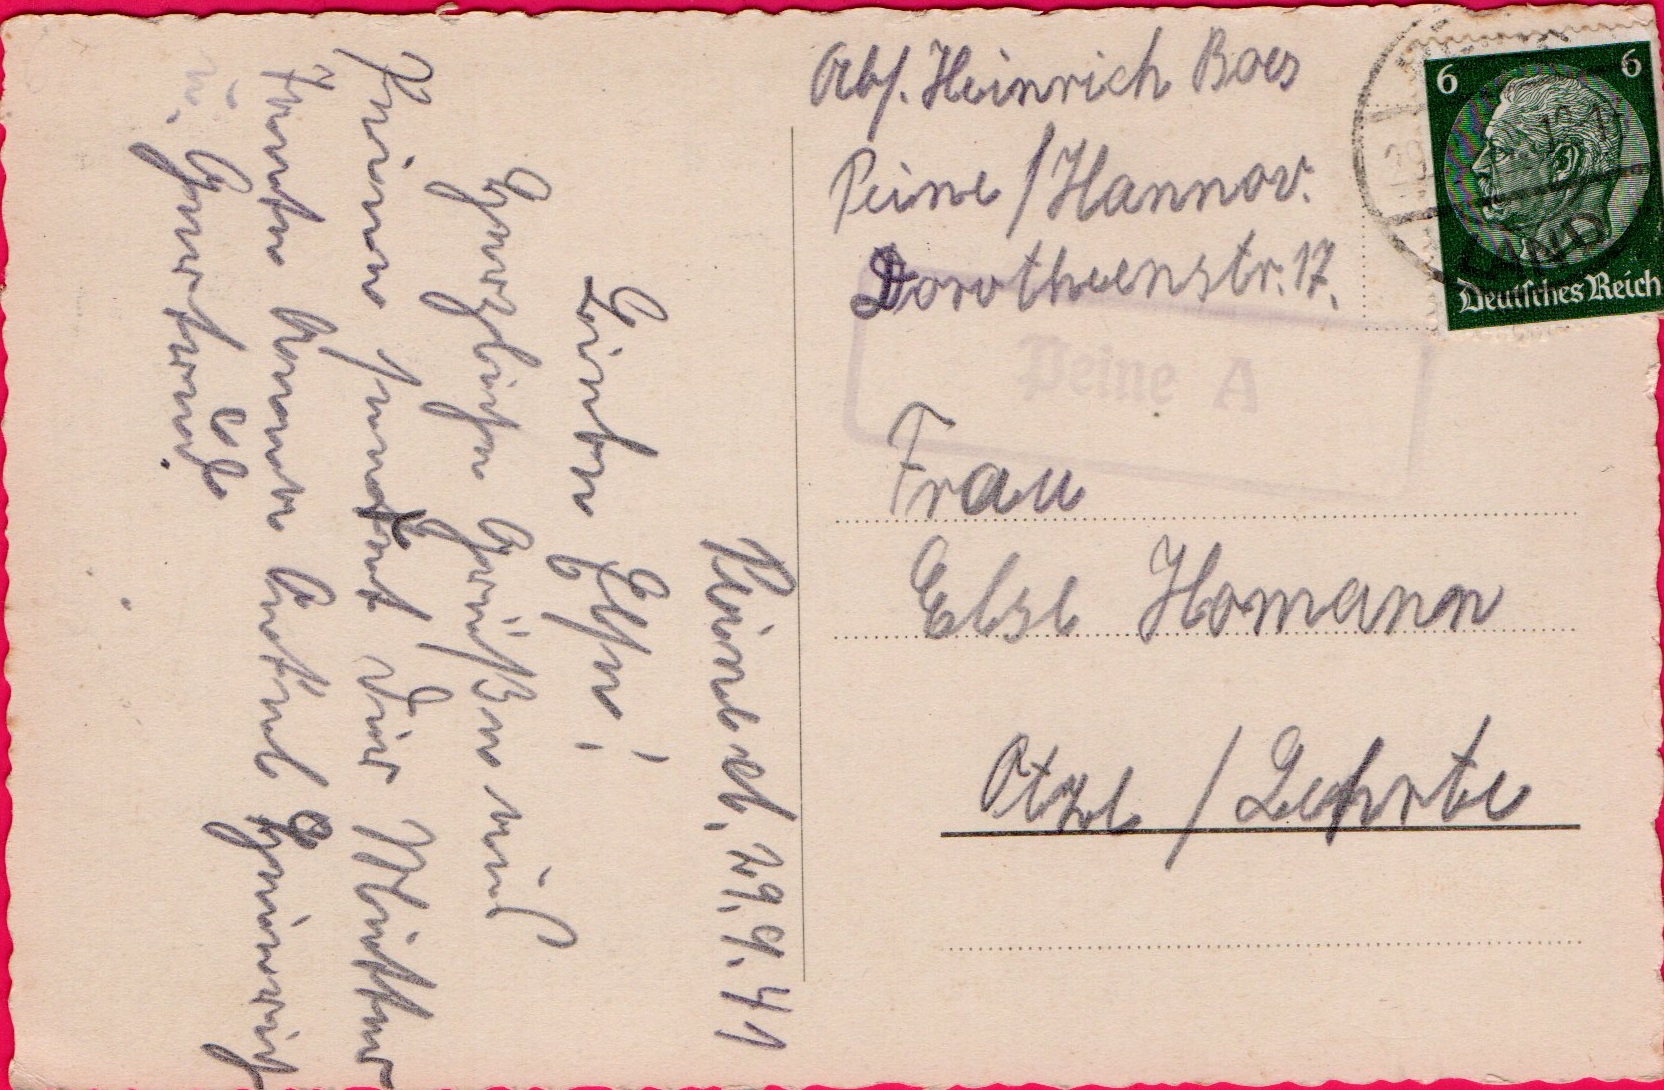 Abs. Heinrich Boes
Peine / Hannov.
Dorotheenstr. 17.
6 6
Deutsches Reich
Peine A
Frau
Else Homann
Otze / Lehrte
Peine d, 29.9.41
Liebe Else!
Herzliche Grüße aus
Peine sendet dir Mutter
Tante Anna Onkel Heinrich
u. Gertrud.